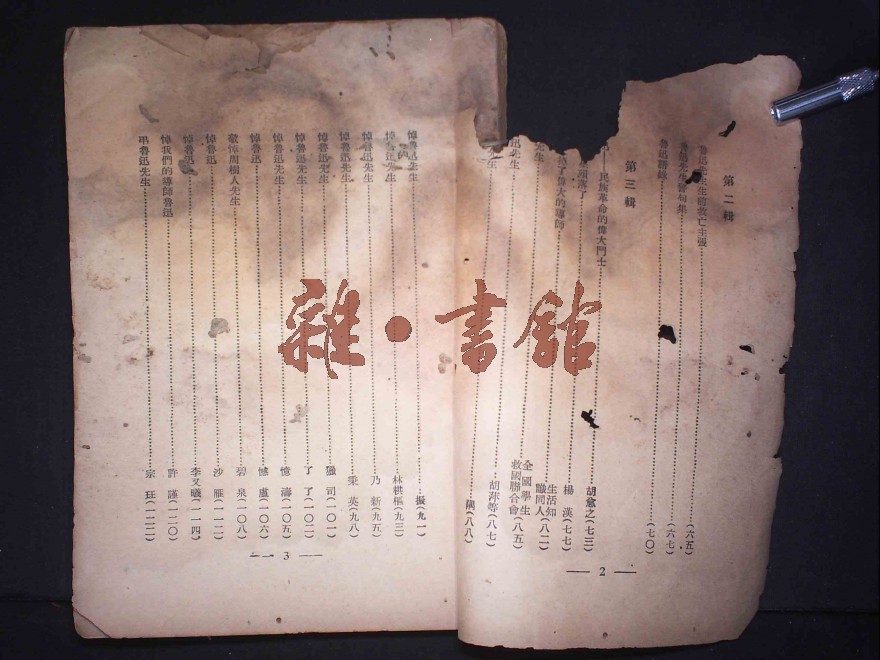 第二輯
魯迅先生生前救亡主張……(六五)
魯迅先生警句集……(六七)
魯迅語錄……(七〇)
第三輯
——民族革命的偉大鬥士……胡愈之(七三)
落了……楊 漢(七七)
了偉大的導師……生活知識同人(八二)
先生……全國學生救國聯合會(八五)
迅先生……胡萍等(八七)
生……隅(八八)
— 2 —
悼魯迅先生……振(九一)
悼魯迅先生……林拱樞(九三)
悼魯迅先生……乃 新(九五)
悼魯迅先生……乘 英(九八)
悼魯迅先生……獵 司(一〇一)
悼魯迅先生……了 了(一〇二)
悼魯迅先生……憶 濤(一〇五)
悼魯迅……憾 廬(一〇六)
敬悼周樹人先生……碧 泉(一〇八)
悼魯迅……沙 雁(一一二)
悼魯迅……李又曦(一一四)
悼我們的導師魯迅……許 謹(一二〇)
弔魯迅先生……宗 玨(一二二)
— 3 —
雜·書館